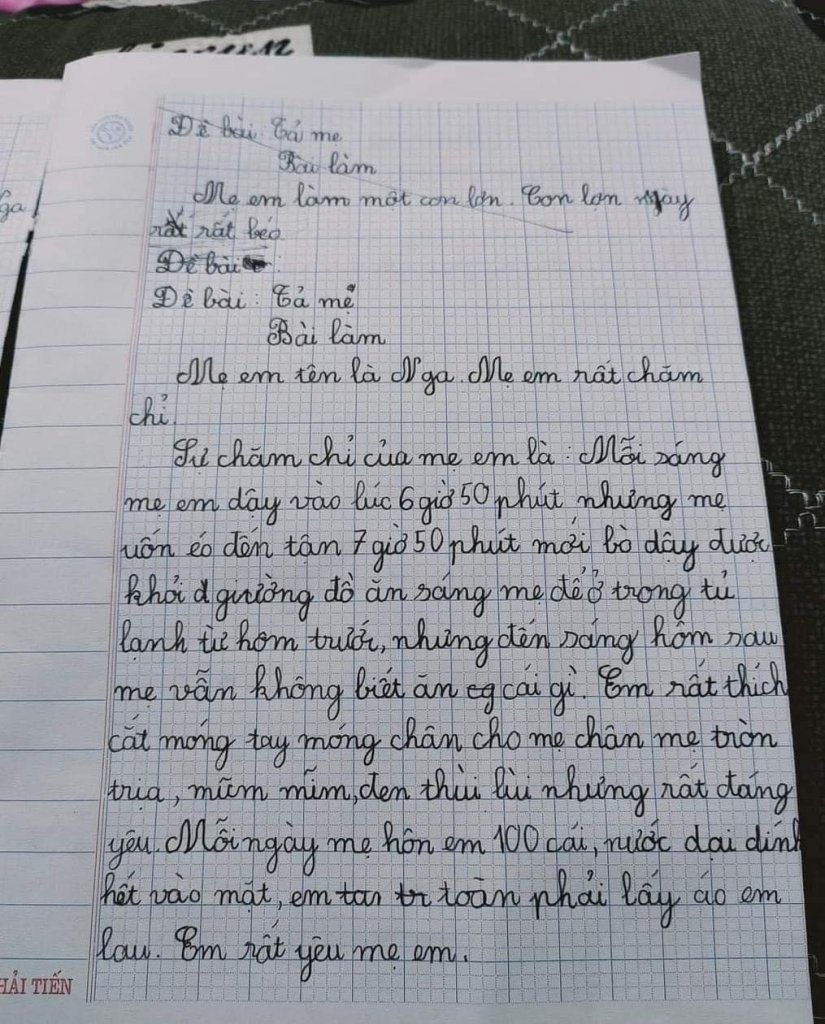 Đề bài: Tả mẹ
Bài làm
Mẹ em làm một con lợn. Con lợn này
rất rất béo
Đề bài:
Đề bài: Tả mẹ
Bài làm
Mẹ em tên là Nga. Mẹ em rất chăm
chỉ.
Sự chăm chỉ của mẹ em là: Mỗi sáng
mẹ em dây vào lúc 6 giờ 50 phút nhưng mẹ
uốn éo đến tận 7 giờ 50 phút mới bò dậy được
khỏi d giường đồ ăn sáng mẹ để ở trong tủ
lạnh từ hôm trước, nhưng đến sáng hôm sau
mẹ vẫn không biết ăn cg cái gì. Em rất thích
cắt móng tay móng chân cho mẹ chân mẹ tròn
trịa, mũm mĩm, đen thùi lùi nhưng rất đáng
yêu. Mỗi ngày mẹ hôn em 100 cái, nước dại dính
hết vào mặt, em tan tr toàn phải lấy áo em
lau. Em rất yêu mẹ em.
ga
HẢI TIẾN